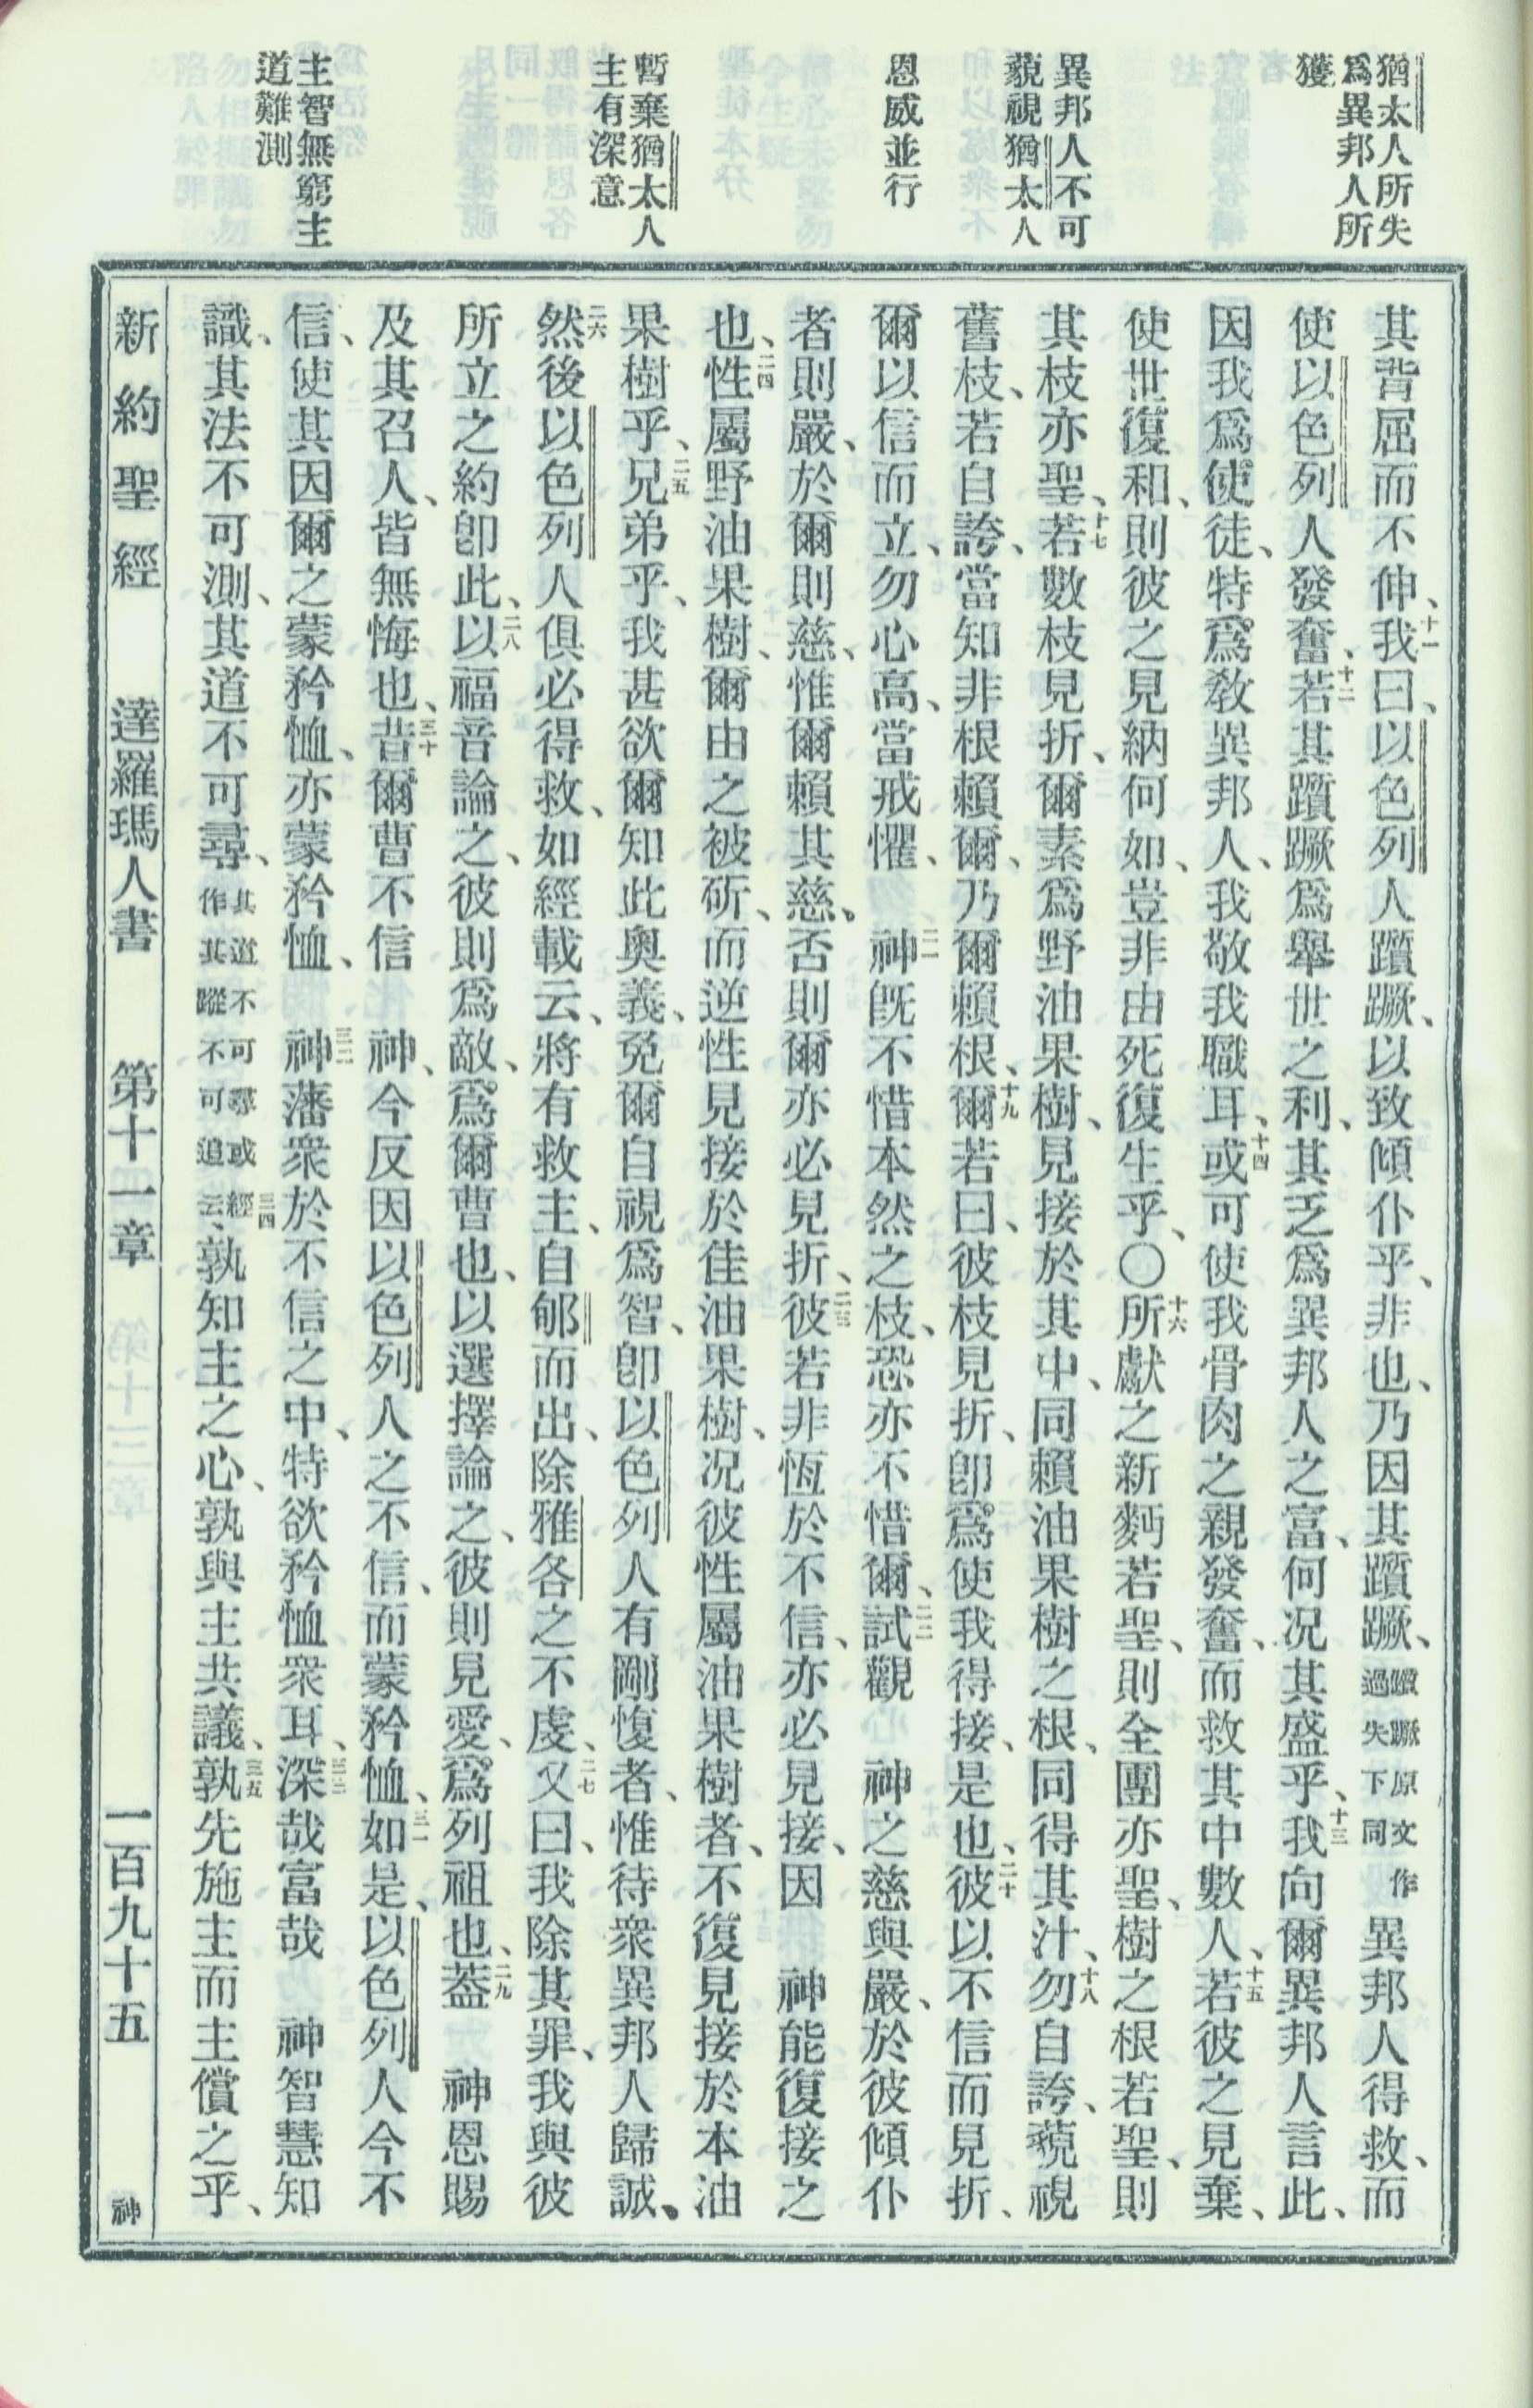 猶太人所失
爲異邦人所
獲
異邦人不可
藐視猶太人
恩威並行
暫棄猶太人
主有深意
主智無窮主
道難測
其背屈而不伸、十一我曰、以色列人躓蹶、以致傾仆乎、非也、乃因其躓蹶、躓蹶原文作過失下同異邦人得救、而
使以色列人發奮、十二若其躓蹶爲舉世之利、其乏爲異邦人之富、何况其盛乎、十三我向爾異邦人言此、
因我爲使徒、特爲敎異邦人、我敬我職耳、十四或可使我骨肉之親發奮、而救其中數人、十五若彼之見棄、
使世復和、則彼之見納何如、豈非由死復生乎、〇十六所獻之新麪若聖、則全團亦聖、樹之根若聖、則
其枝亦聖、十七若數枝見折、爾素爲野油果樹、見接於其中、同賴油果樹之根、同得其汁、十八勿自誇、藐視
舊枝、若自誇、當知非根賴爾、乃爾賴根、十九爾若曰、彼枝見折、卽爲使我得接、是也、二十彼以不信而見折、
爾以信而立、勿心高、當戒懼、二一神旣不惜本然之枝、恐亦不惜爾、二二試觀 神之慈與嚴、於彼傾仆
者則嚴、於爾則慈、惟爾賴其慈、否則爾亦必見折、二三彼若非恆於不信、亦必見接、因 神能復接之
也、二四性屬野油果樹、爾由之被斫、而逆性見接於佳油果樹、况彼性屬油果樹者、不復見接於本油
果樹乎、二五兄弟乎、我甚欲爾知此奧義、免爾自視爲智、卽以色列人有剛愎者、惟待衆異邦人歸誠、
二六然後以色列人俱必得救、如經載云、將有救主、自郇而出、除雅各之不虔、二七又曰、我除其罪、我與彼
所立之約卽此、二八以福音論之、彼則爲敵、爲爾曹也、以選擇論之、彼則見愛、爲列祖也、二九蓋 神恩賜
及其召人、皆無悔也、三十昔爾曹不信 神、今反因以色列人之不信、而蒙矜恤、三一如是、以色列人今不
信、使其因爾之蒙矜恤、亦蒙矜恤、三二神藩衆於不信之中、特欲矜恤衆耳、三三深哉富哉 神智慧知
識、其法不可測、其道不可尋、其道不可尋或作其蹤不可追三四經云、孰知主之心、孰與主共議、三五孰先施主而主償之乎、
新約聖經 達羅瑪人書 第十一章 一百九十五 神